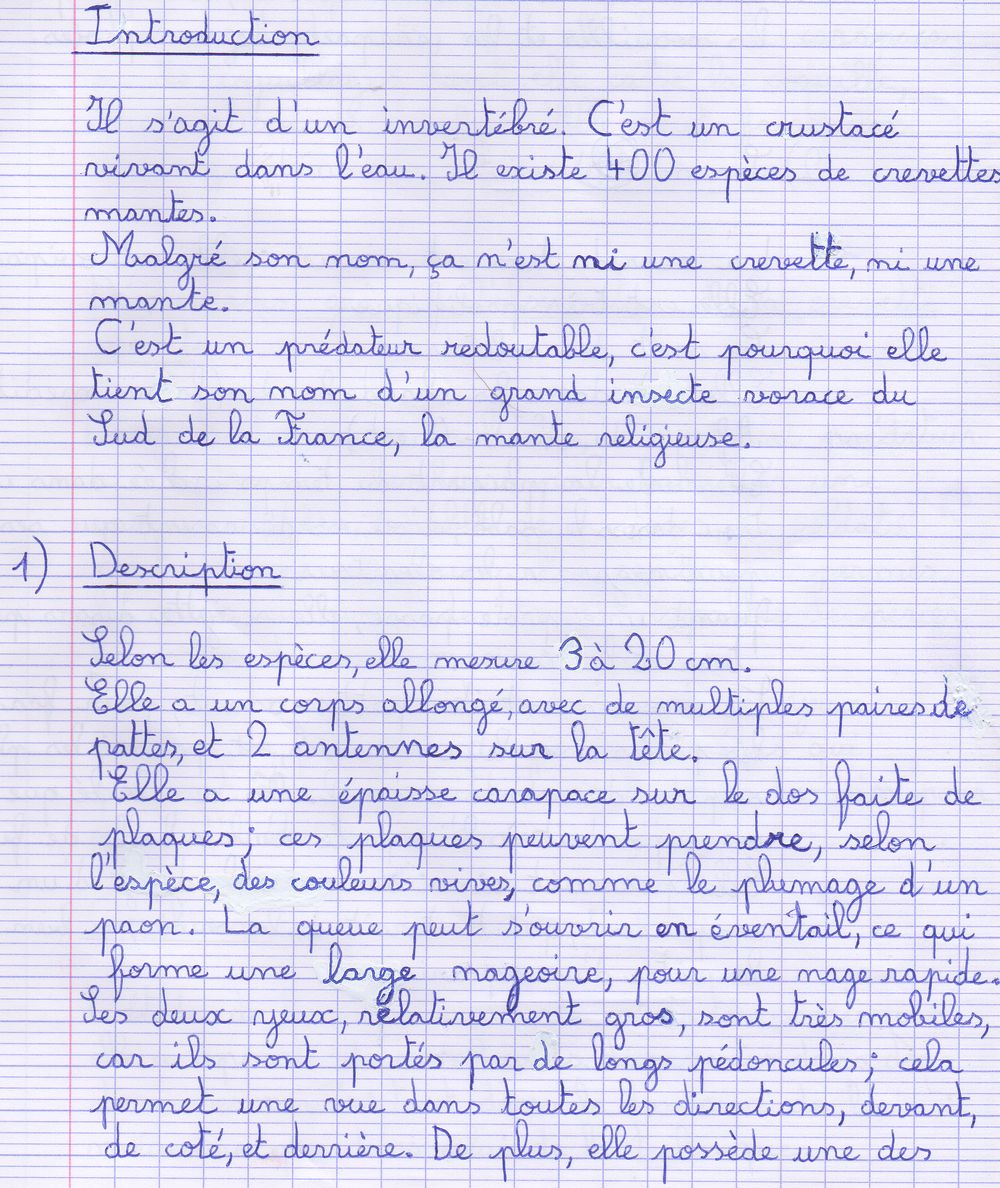 Introduction
Il s'agit d'un invertébré. C'est un crustacé
vivant dans l'eau. Il existe 400 espèces de crevettes
mantes.
Malgré son nom, ça n'est ni une crevette, ni une
mante.
C'est un prédateur redoutable, c'est pourquoi elle
tient son nom d'un grand insecte vorace du
Sud de la France, la mante religieuse.
1) Description
Selon les espèces, elle mesure 3 à 20 cm.
Elle a un corps allongé, avec de multiples paires de
pattes, et 2 antennes sur la tête.
Elle a une épaisse carapace sur le dos faite de
plaques; ces plaques peuvent prendre, selon
l'espèce, des couleurs vives, comme le plumage d'un
paon. La queue peut s'ouvrir en éventail, ce qui
forme une large nageoire, pour une nage rapide.
Ses deux yeux, rélativement gros, sont très mobiles,
car ils sont portés par de longs pédoncules; cela
permet une vue dans toutes les directions, devant,
de coté, et derrière. De plus, elle possède une des